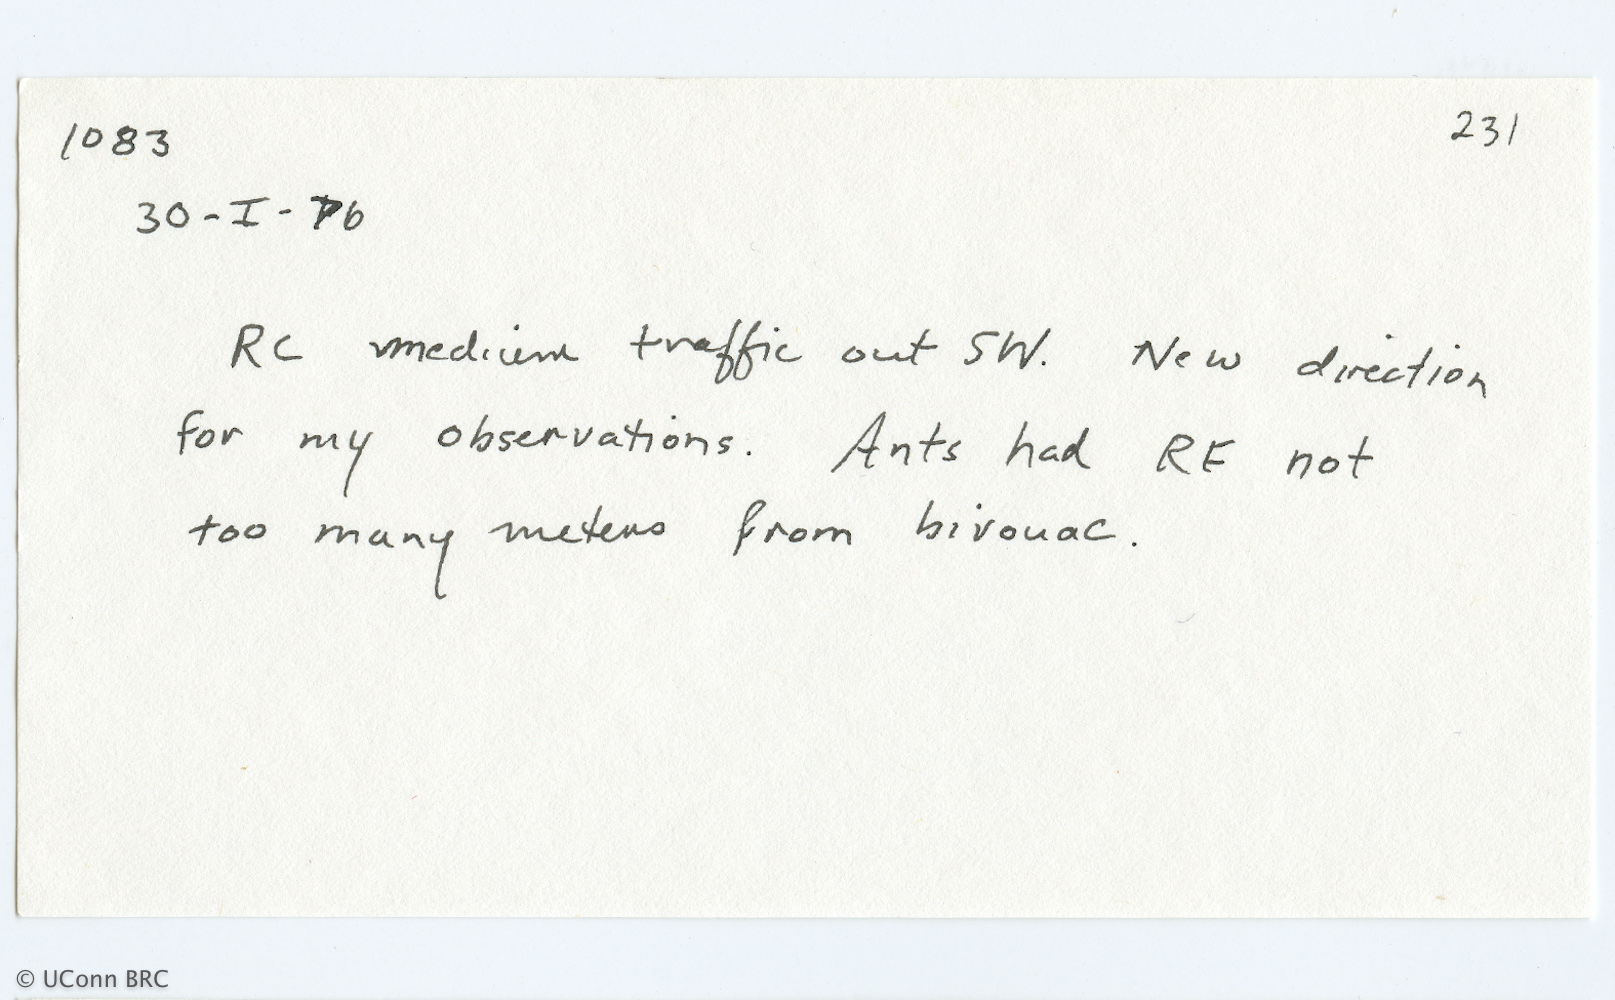 1083
231
30-I-76
RC medium traffic out SW. New direction
for my observations. Ants had RE not
too many meters from bivouac.
© UConn BRC